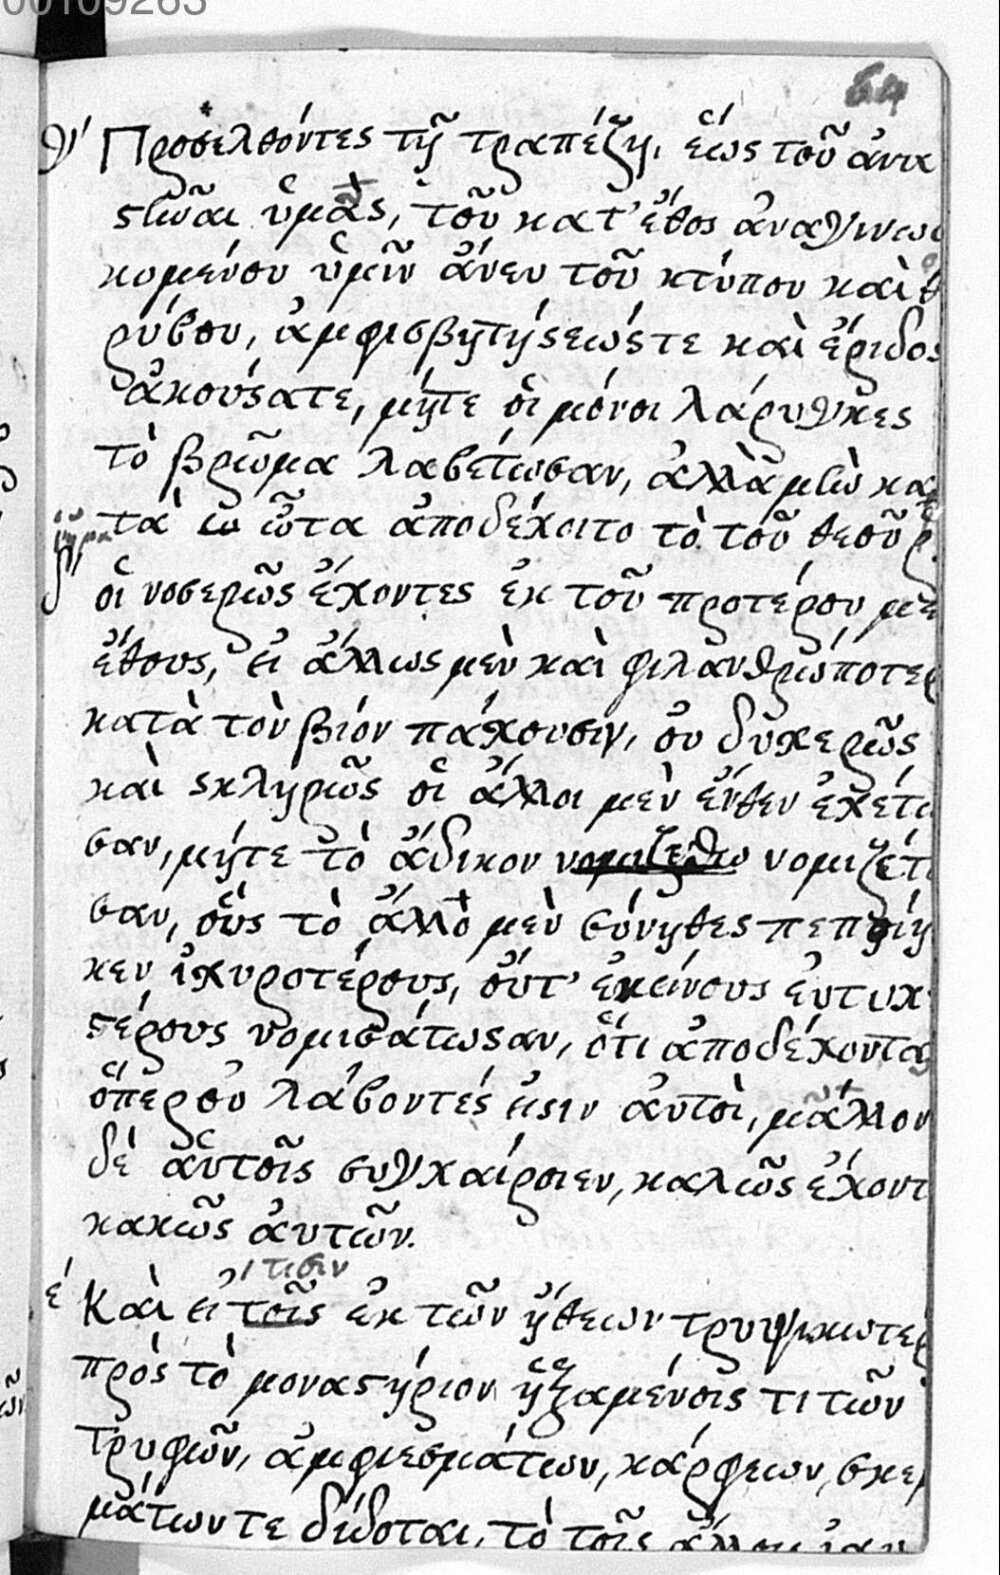 00109263
64
γ´ Προσελθόντες τῇ τραπέζῃ, ἕως τοῦ ἀνα
στῶαι ὑμᾶς, τοῦ κατ' ἔθος ἀναγινωσ
κομένου ὑμῖν ἄνευ τοῦ κτύπου καὶ θ
ρύβου, ἀμφισβητήσεώς τε καὶ ἔριδος
ἀκούσατε, μήτε οἱ μόνοι λάρυγκες
τὸ βρῶμα λαβέτωσαν, ἀλλὰ μὴν καὶ
τὰ ὦτα ἀποδέχοιτο τὸ τοῦ θεοῦ ῥ
οἱ νοσερῶς ἔχοντες ἐκ τοῦ προτέρου με
ἔθους, εἰ ἄλλως μὲν καὶ φιλανθρωποτερ
κατὰ τὸν βίον πάσχουσιν, οὐ δυσχερῶς
καὶ σκληρῶς οἱ ἄλλοι μὲν ἔνθεν ἐχέτω
σαν, μήτε τὸ ἄδικον νομιζέθω νομιζέτω
σαν, οὓς τὸ ἄλλο μὲν σύνηθες πεποίη
κεν ἰσχυροτέρους, οὔτ' ἐκείνους εὐτυχ
τέρους νομισάτωσαν, ὅτι ἀποδέχονται
ὅπερ οὐ λάβοντές εἰσιν ἀυτοὶ, μᾶλλον
δέ αὑτοῖς συγχαίροιεν, καλῶς ἔχοντ
κακῶς ἀυτῶν.
τισιν
ε´ Καὶ εἰ τοῖς ἐκ τῶν ἤθεων τρυφικωτερ
πρὸς τὸ μοναστήριον ἡξαμένοις τι τῶν
τρυφῶν, ἀμφιεσμάτων, κάρφεων, σκε
μάτων τε δίδοται, τὸ τοῖς ἄλλοι